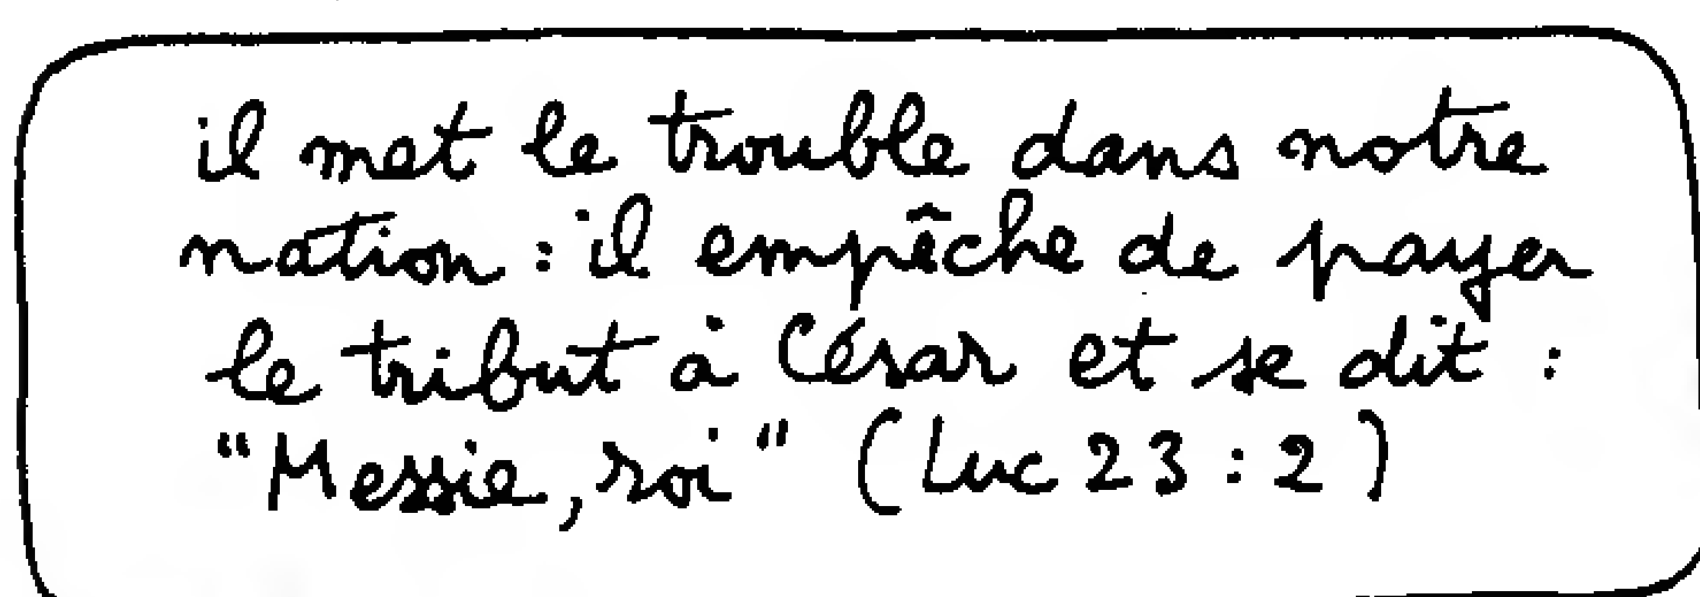 il met le trouble dans notre
nation : il empêche de payer
le tribut à César et se dit :
"Messie, roi" (Luc 23 : 2)